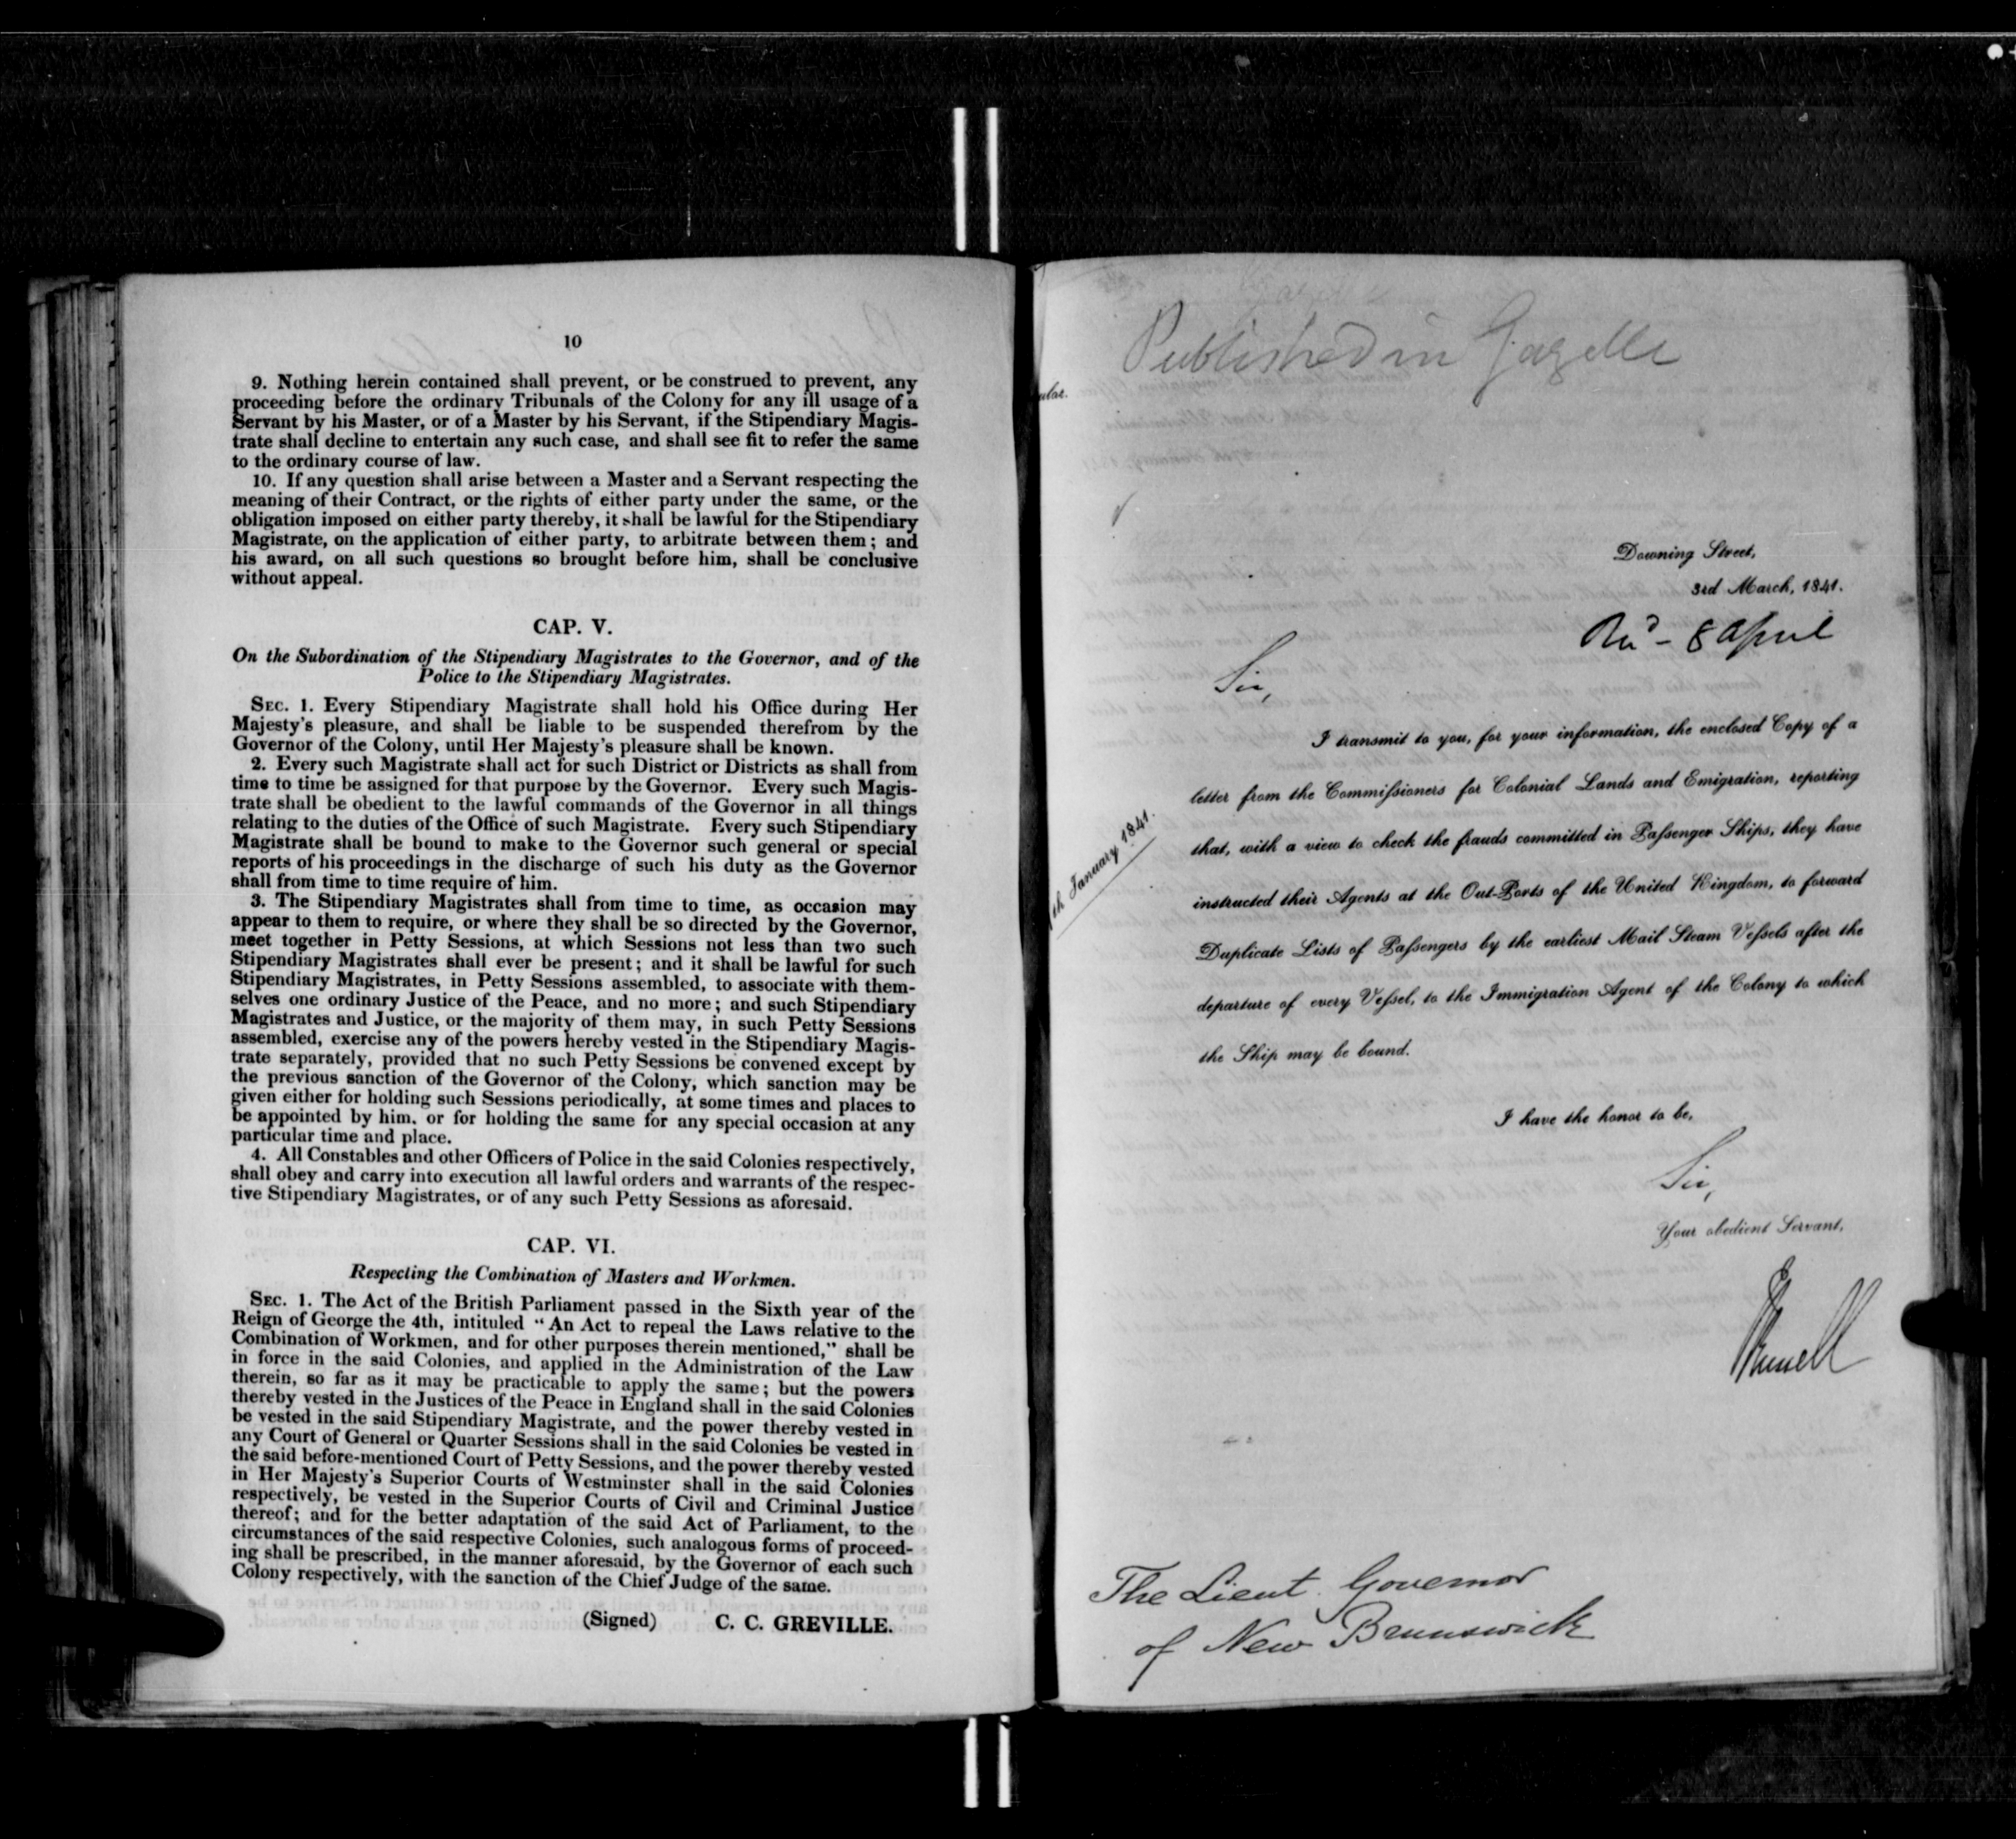 10
9. Nothing herein contained shall prevent, or be construed to prevent, any
proceeding before the ordinary Tribunals of the Colony for any ill usage of a
Servant by his Master, or of a Master by his Servant, if the Stipendiary Magis-
trate shall decline to entertain any such case, and shall see fit to refer the same
to the ordinary course of law.
10. If any question shall arise between a Master and a Servant respecting the
meaning of their Contract, or the rights of either party under the same, or the
obligation imposed on either party thereby, it shall be lawful for the Stipendiary
Magistrate, on the application of either party, to arbitrate between them; and
his award, on all such questions so brought before him, shall be conclusive
without appeal.
CAP. V.
On the Subordination of the Stipendiary Magistrates to the Governor, and of the
Police to the Stipendiary Magistrates.
SEC. 1. Every Stipendiary Magistrate shall hold his Office during Her
Majesty's pleasure, and shall be liable to be suspended therefrom by the
Governor of the Colony, until Her Majesty's pleasure shall be known.
2. Every such Magistrate shall act for such District or Districts as shall from
time to time be assigned for that purpose by the Governor. Every such Magis-
trate shall be obedient to the lawful commands of the Governor in all things
relating to the duties of the Office of such Magistrate. Every such Stipendiary
Magistrate shall be bound to make to the Governor such general or special
reports of his proceedings in the discharge of such his duty as the Governor
shall from time to time require of him.
3. The Stipendiary Magistrates shall from time to time, as occasion may
appear to them to require, or where they shall be so directed by the Governor,
meet together in Petty Sessions, at which Sessions not less than two such
Stipendiary Magistrates shall ever be present; and it shall be lawful for such
Stipendiary Magistrates, in Petty Sessions assembled, to associate with them-
selves one ordinary Justice of the Peace, and no more; and such Stipendiary
Magistrates and Justice, or the majority of them may, in such Petty Sessions
assembled, exercise any of the powers hereby vested in the Stipendiary Magis-
trate separately, provided that no such Petty Sessions be convened except by
the previous sanction of the Governor of the Colony, which sanction may be
given either for holding such Sessions periodically, at some times and places to
be appointed by him, or for holding the same for any special occasion at any
particular time and place.
4. All Constables and other Officers of Police in the said Colonies respectively,
shall obey and carry into execution all lawful orders and warrants of the respec-
tive Stipendiary Magistrates, or of any such Petty Sessions as aforesaid.
CAP. VI.
Respecting the Combination of Masters and Workmen.
SEC. 1. The Act of the British Parliament passed in the Sixth year of the
Reign of George the 4th, intituled "An Act to repeal the Laws relative to the
Combination of Workmen, and for other purposes therein mentioned," shall be
in force in the said Colonies, and applied in the Administration of the Law
therein, so far as it may be practicable to apply the same; but the powers
thereby vested in the Justices of the Peace in England shall in the said Colonies
be vested in the said Stipendiary Magistrate, and the power thereby vested in
any Court of General or Quarter Sessions shall in the said Colonies be vested in
the said before-mentioned Court of Petty Sessions, and the power thereby vested
in Her Majesty's Superior Courts of Westminster shall in the said Colonies
respectively, be vested in the Superior Courts of Civil and Criminal Justice
thereof; and for the better adaptation of the said Act of Parliament, to the
circumstances of the said respective Colonies, such analogous forms of proceed-
ing shall be prescribed, in the manner aforesaid, by the Governor of each such
Colony respectively, with the sanction of the Chief Judge of the same.
(Signed) C. C. GREVILLE.
Published in Gazette
ular.
Downing Street,
3rd March, 1841.
Recd - 8 April
Sir,
I transmit to you, for your information, the enclosed Copy of a
letter from the Commissioners for Colonial Lands and Emigration, reporting
that, with a view to check the frauds committed in Passenger Ships, they have
instructed their Agents at the Out-Ports of the United Kingdom, to forward
Duplicate Lists of Passengers by the earliest Mail Steam Vessels after the
departure of every Vessel, to the Immigration Agent of the Colony to which
the Ship may be bound.
th January 1841.
I have the honor to be,
Sir,
Your obedient Servant,
J Russell
The Lieut. Governor
of New Brunswick